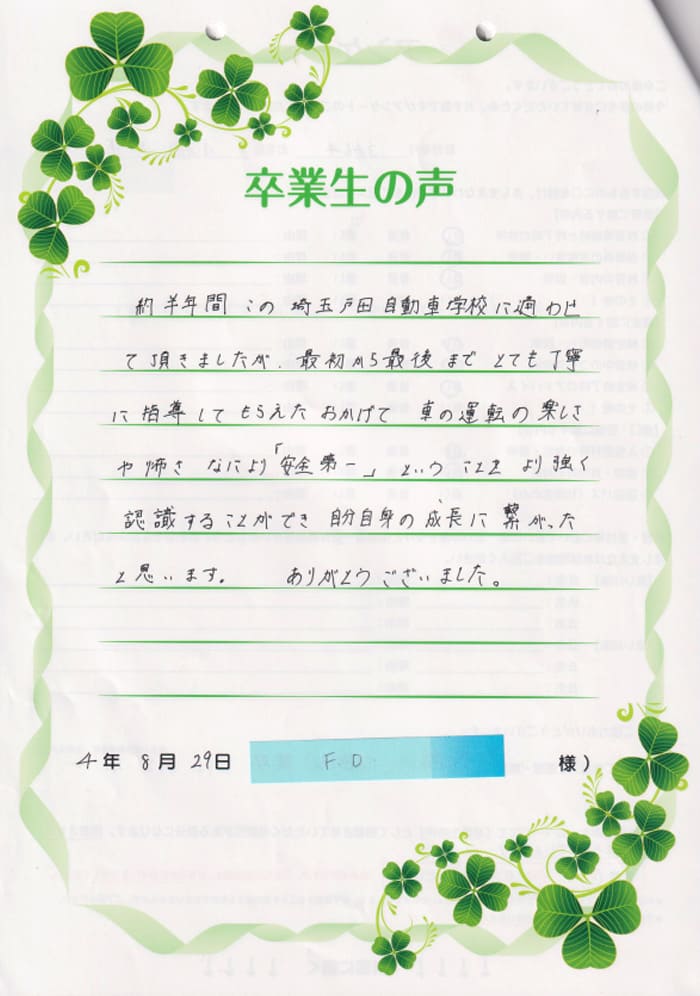 卒業生の声
約半年間 この 埼玉戸田自動車学校に通わせ
て頂きましたが、最初から最後まで とても丁寧
に指導してもらえたおかげで 車の運転の楽しさ
や怖さ なにより「安全第一」ということを より強く
認識することができ 自分自身の成長に繋がった
と思います。 ありがとうございました。
4年 8月 29日 F.D 様)